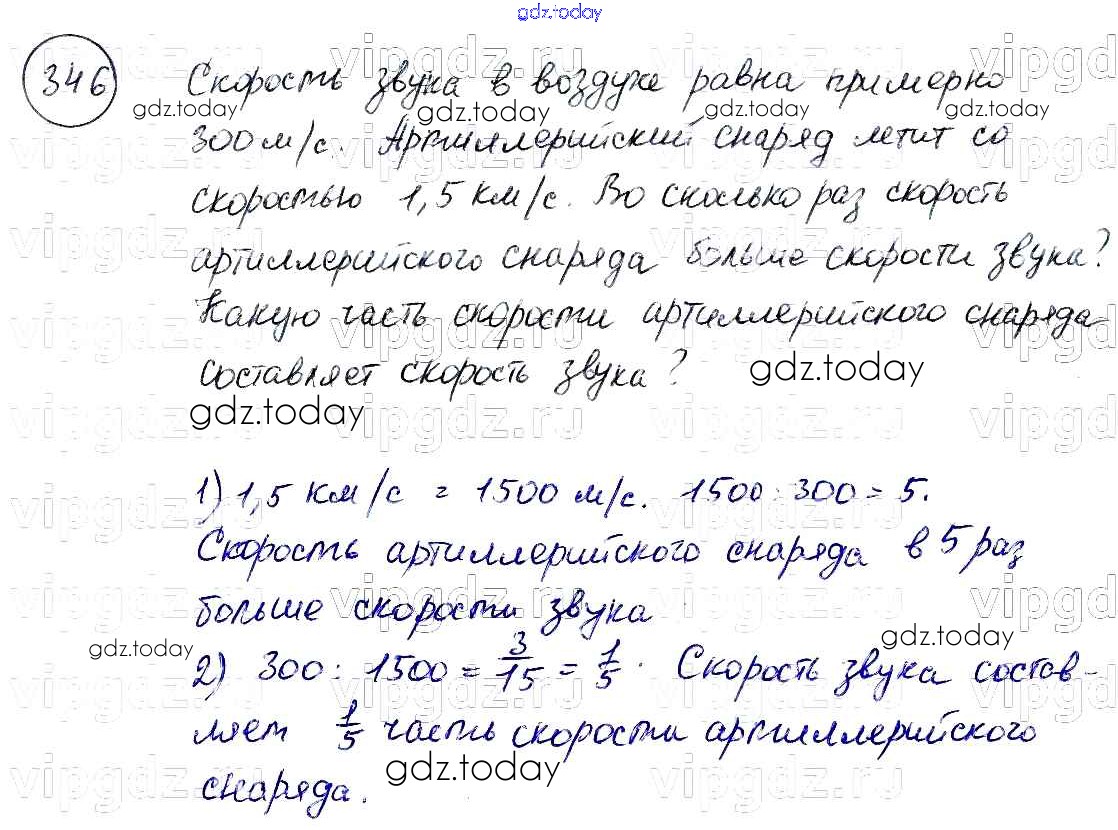 gdz.today
346 Скорость звука в воздухе равна примерно
300 м/с. Артиллерийский снаряд летит со
скоростью 1,5 км/с. Во сколько раз скорость
артиллерийского снаряда больше скорости звука?
Какую часть скорости артиллерийского снаряда
составляет скорость звука?
gdz.today
gdz.today
1) 1,5 км/с = 1500 м/с. 1500 : 300 = 5.
Скорость артиллерийского снаряда в 5 раз
больше скорости звука
2) 300 : 1500 = 3/15 = 1/5. Скорость звука состав-
ляет 1/5 часть скорости артиллерийского
снаряда.
gdz.today
gdz.today
gdz.today
vipgdz.ru